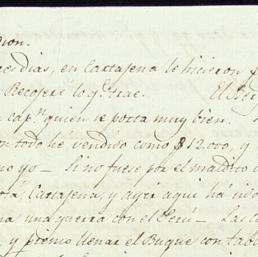 dion.
dias, en Cartajena le hicieron
Recojeré lo q.e trae. El
cap.n quien se porta muy bien.
todo he vendido como $12.000, y
mo yo — Si no fuese por el maldito
tá, Cartajena, y ayer aqui ha ido
na una guerra con el Perú — Las
y pienso llenar el Buque con tabl